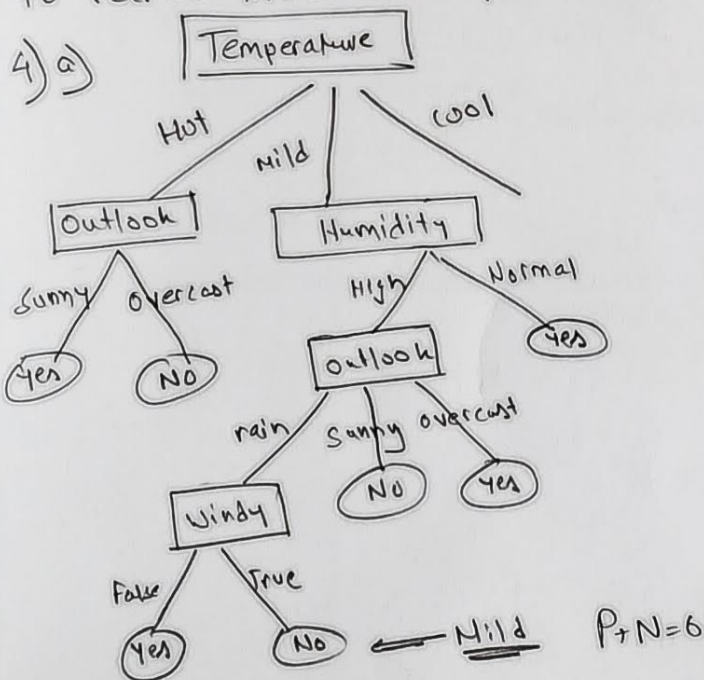 4) a)
Temperature
Hot Mild Cool
Outlook Humidity
Sunny Overcast High Normal
Yes No Outlook Yes
rain Sunny overcast
Windy No Yes
False True
Yes No ← Mild P+N=6